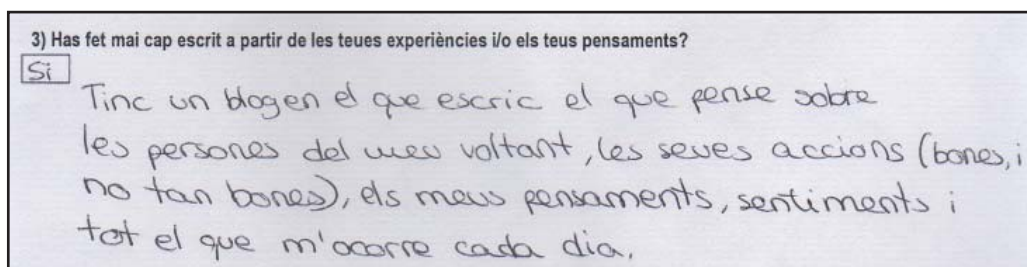 3) Has fet mai cap escrit a partir de les teues experiències i/o els teus pensaments?
Si
Tinc un blog en el que escric el que pense sobre
les persones del meu voltant, les seues accions (bones, i
no tan bones), els meus pensaments, sentiments i
tot el que m'ocorre cada dia.